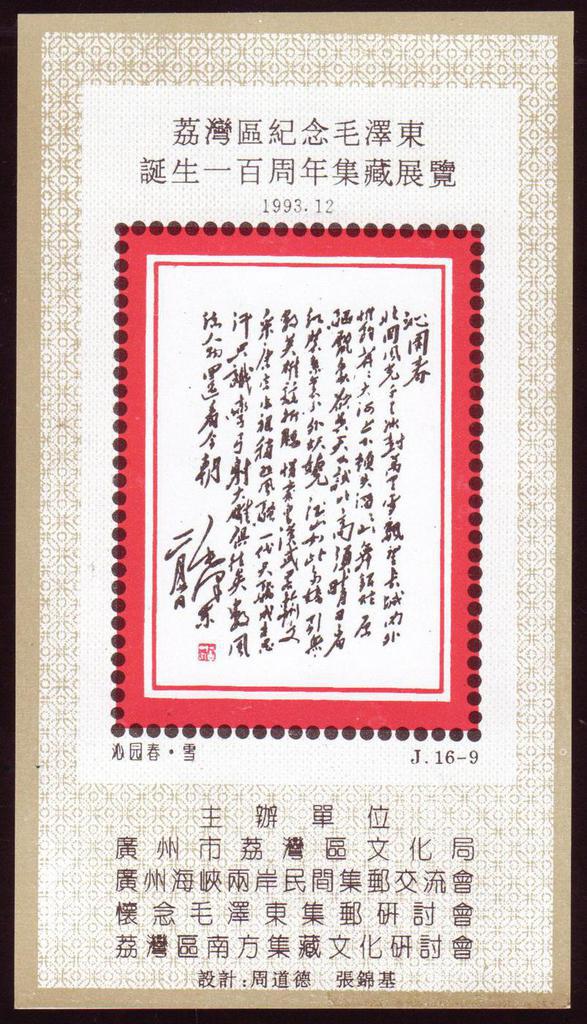 荔灣區紀念毛澤東
誕生一百周年集藏展覽
1993.12
沁園春
北國風光千里冰封萬里雪飄望長城內外
惟餘莽莽大河上下頓失滔滔山舞銀蛇原
驅臘象欲與天公試比高須晴日看
紅裝素裹分外妖嬈江山如此多嬌引無
數英雄競折腰惜秦皇漢武略輸文
采唐宗宋祖稍遜風騷一代天驕成吉思
汗只識彎弓射大雕俱往矣數風
流人物還看今朝
毛澤東
沁园春·雪
J.16-9
主辦單位
廣州市荔灣區文化局
廣州海峽兩岸民間集郵交流會
懷念毛澤東集郵研討會
荔灣區南方集藏文化研討會
設計:周道德 張錦基